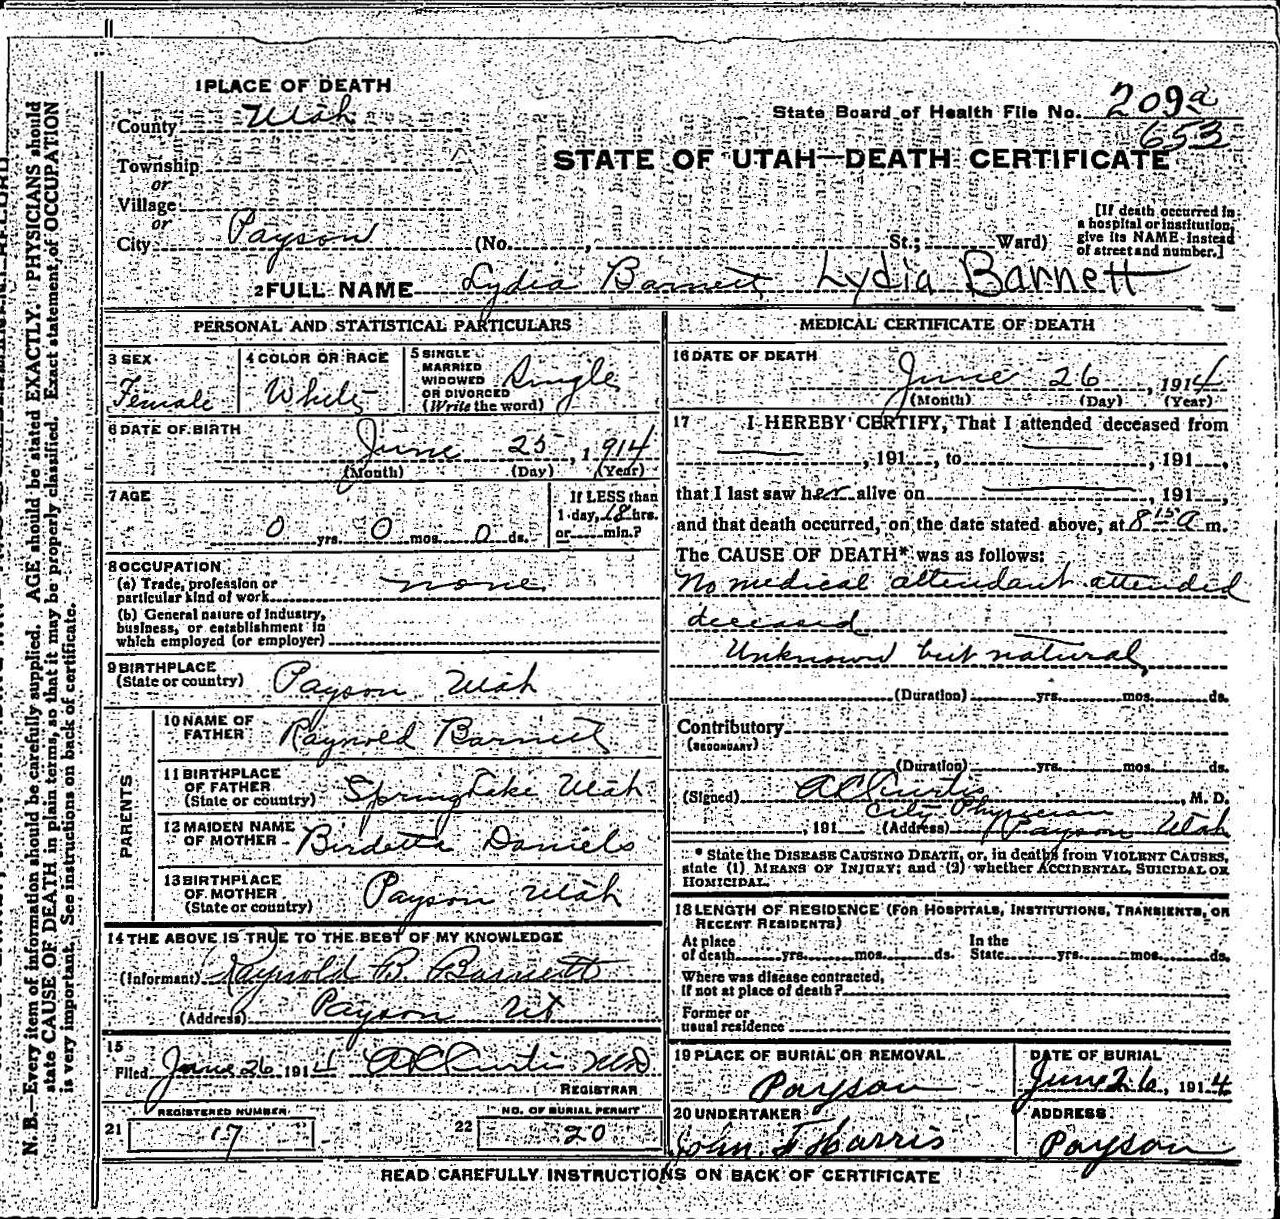 1 PLACE OF DEATH
County Utah
Township
or
Village
or
City Payson (No. , St.; Ward)
State Board of Health File No. 209a
653
STATE OF UTAH—DEATH CERTIFICATE
[If death occurred in
a hospital or institution,
give its NAME instead
of street and number.]
2 FULL NAME Lydia Barnett Lydia Barnett
PERSONAL AND STATISTICAL PARTICULARS
3 SEX
Female
4 COLOR OR RACE
White
5 SINGLE
MARRIED
WIDOWED
OR DIVORCED
(Write the word)
Single
6 DATE OF BIRTH
June 25, 1914
(Month) (Day) (Year)
7 AGE
0 yrs. 0 mos. 0 ds.
If LESS than
1 day, 18 hrs.
or min.?
8 OCCUPATION
(a) Trade, profession or
particular kind of work none
(b) General nature of Industry,
business, or establishment in
which employed (or employer)
9 BIRTHPLACE
(State or country) Payson Utah
PARENTS
10 NAME OF
FATHER Raynold Barnett
11 BIRTHPLACE
OF FATHER
(State or country) Spring Lake Utah
12 MAIDEN NAME
OF MOTHER Birdetta Daniels
13 BIRTHPLACE
OF MOTHER
(State or country) Payson Utah
14 THE ABOVE IS TRUE TO THE BEST OF MY KNOWLEDGE
(Informant) Raynold B. Barnett
(Address) Payson Ut
15
Filed June 26 1914 A C Curtis MD
REGISTRAR
REGISTERED NUMBER
21 17
NO. OF BURIAL PERMIT
22 20
MEDICAL CERTIFICATE OF DEATH
16 DATE OF DEATH
June 26, 1914
(Month) (Day) (Year)
17 I HEREBY CERTIFY, That I attended deceased from
, 191 , to , 191 ,
that I last saw her alive on , 191 ,
and that death occurred, on the date stated above, at 8 15 a m.
The CAUSE OF DEATH* was as follows:
No medical attendant attended
deceased
Unknown but natural
(Duration) yrs. mos. ds.
Contributory
(SECONDARY)
(Duration) yrs. mos. ds.
(Signed) A C Curtis, M. D.
City Physician
, 191 (Address) Payson Utah
* State the DISEASE CAUSING DEATH, or, in deaths from VIOLENT CAUSES,
state (1) MEANS OF INJURY; and (2) whether ACCIDENTAL, SUICIDAL OR
HOMICIDAL.
18 LENGTH OF RESIDENCE (FOR HOSPITALS, INSTITUTIONS, TRANSIENTS, OR
RECENT RESIDENTS)
At place
of death yrs. mos. ds.
In the
State yrs. mos. ds.
Where was disease contracted,
If not at place of death?
Former or
usual residence
19 PLACE OF BURIAL OR REMOVAL
Payson
DATE OF BURIAL
June 26, 1914
20 UNDERTAKER
John J Harris
ADDRESS
Payson
READ CAREFULLY INSTRUCTIONS ON BACK OF CERTIFICATE
N. B.—Every item of information should be carefully supplied. AGE should be stated EXACTLY. PHYSICIANS should
state CAUSE OF DEATH in plain terms, so that it may be properly classified. Exact statement of OCCUPATION
is very important. See instructions on back of certificate.